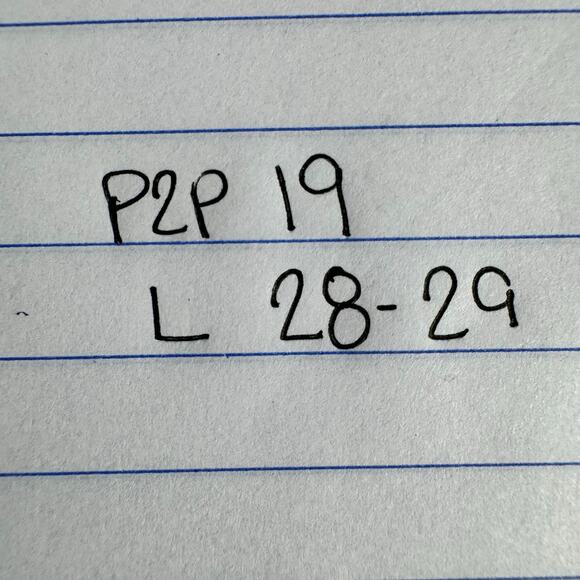 P2P 19
L 28-29